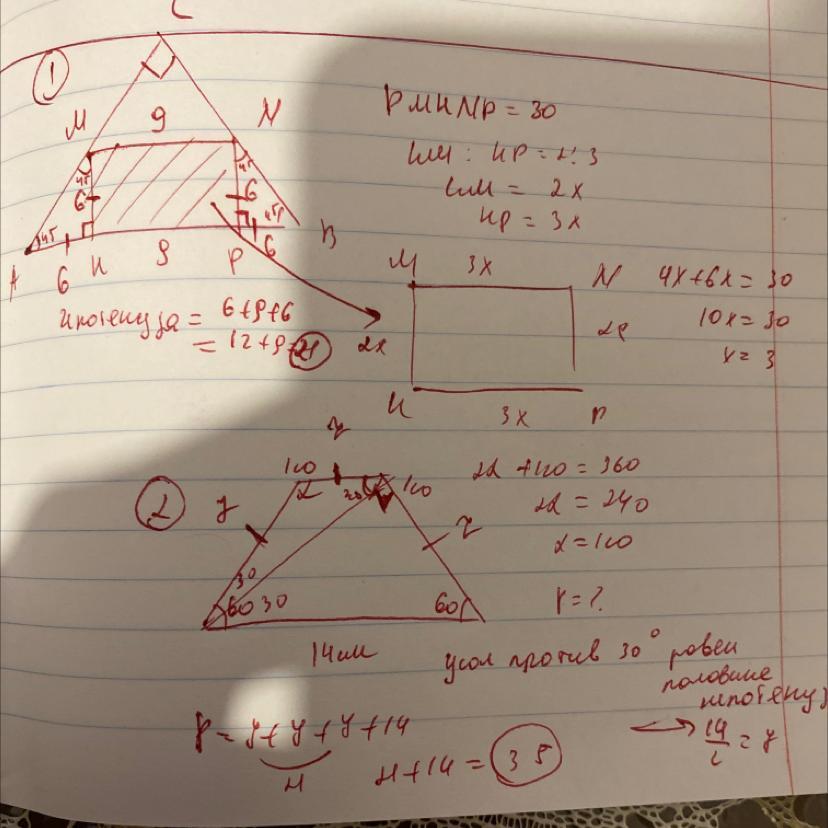 C
①
M 9 N
45 45
6 6
45 45
A 6 K 9 P 6 B
гипотенуза = 6+9+6
= 12+9 = 21
PMKNP = 30
KM : KP = 2:3
KM = 2x
KP = 3x
M 3x N
2x 2x
K 3x P
4x+6x = 30
10x = 30
x = 3
②
y
120 120
y α 30 y
30
60 30 60
14 см
2α +120 = 360
2α = 240
α = 120
P = ?
угол против 30° равен
половине
гипотенуз
14/2 = y
P = y + y + y + 14
21
21 + 14 = 35